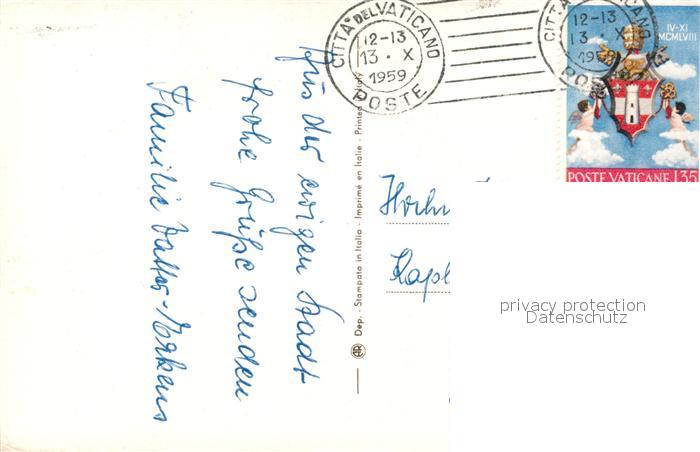 CITTÀ DEL VATICANO
12-13
13 · X
1959
POSTE
CITTÀ VATICANO
12-13
13 · X
POSTE
IV-XI
MCMLVIII
POSTE VATICANE L35
Aus der ewigen Stadt
frohe Grüße senden
Familie
Dep. - Stampata in Italia - Imprimé en Italie - Printed in Italy
Hochw
Kapl
privacy protection
Datenschutz